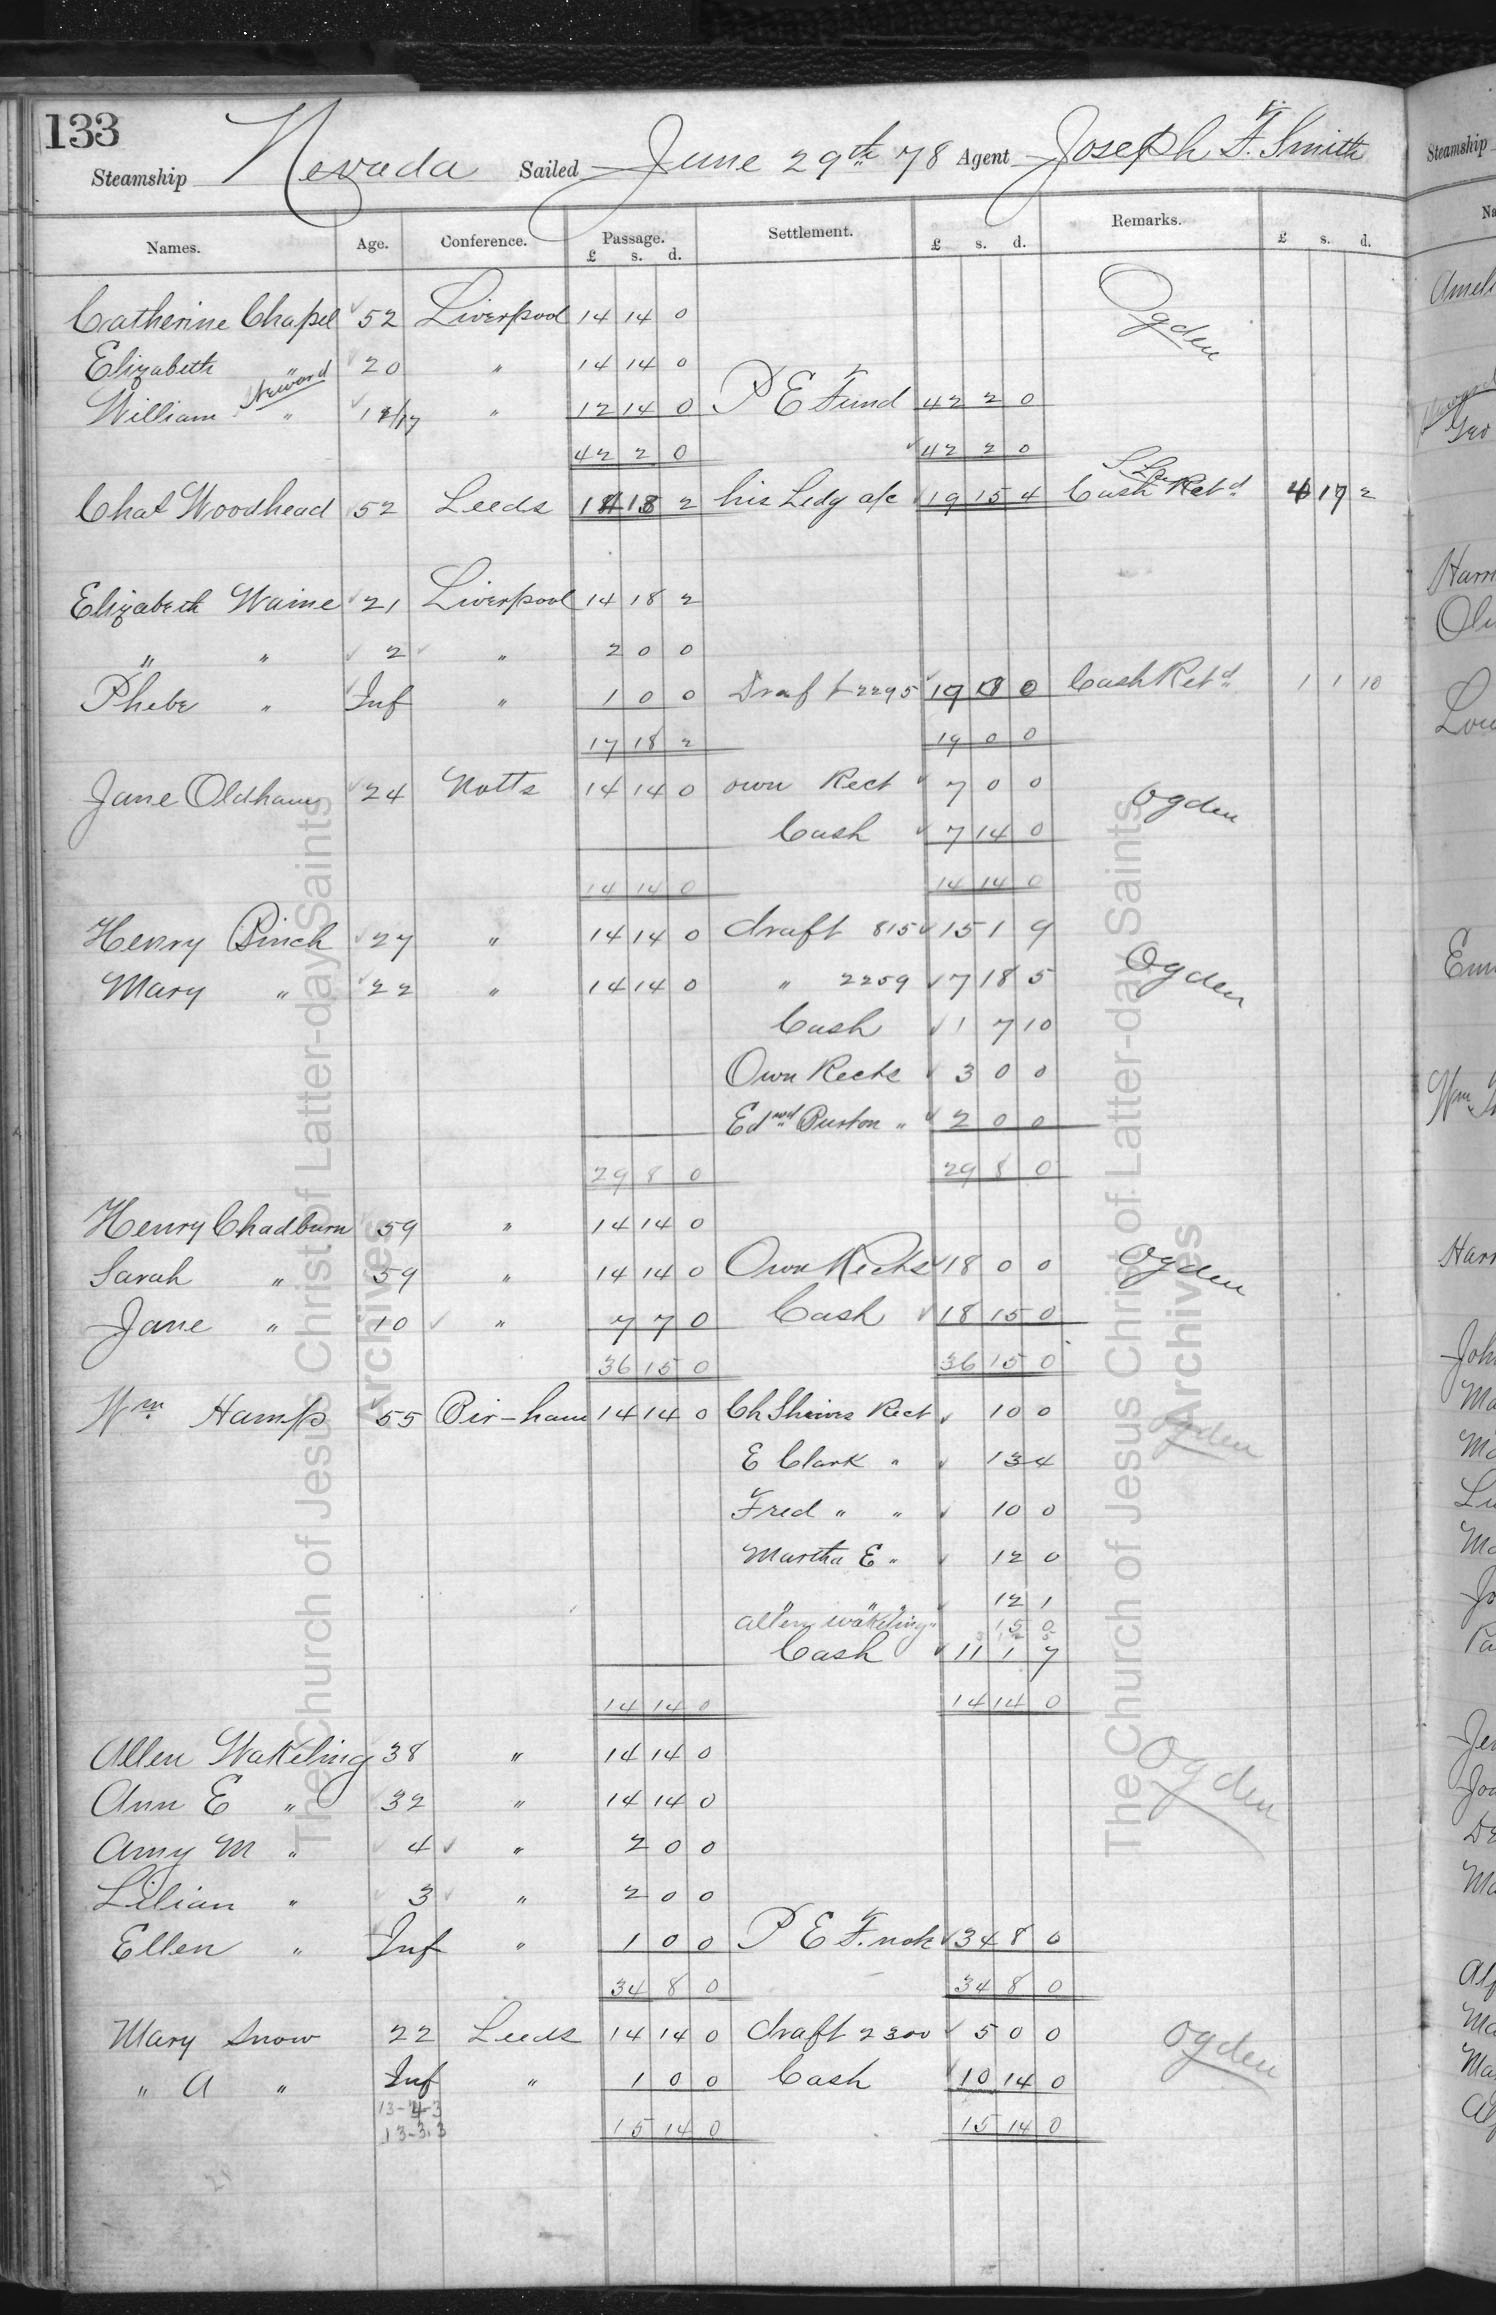 133
Steamship Nevada Sailed June 29th 78 Agent Joseph F. Smith
Names. Age. Conference. Passage. Settlement. £ s. d. Remarks. £ s. d.
£ s. d.
Catherine Chapel 52 Liverpool 14 14 0 Ogden
Elizabeth " 20 " 14 14 0
Steward
William " " 12 14 0 P E Fund 42 2 0
42 2 0 42 2 0
Chas Woodhead 52 Leeds 14 18 2 his Ledg a/c 19 15 4 Cash Retd 4 17 2
Elizabeth Waine 21 Liverpool 14 18 2
" " 2 " 2 0 0
Phebe " Inf " 1 0 0 Draft 2295 19 0 0 Cash Retd 1 1 10
17 18 2 19 0 0
Jane Oldham 24 Notts 14 14 0 own Rect 7 0 0 Ogden
Cash 7 14 0
14 14 0 14 14 0
Henry Binch 27 " 14 14 0 draft 815 15 1 9 Ogden
Mary " 22 " 14 14 0 " 2259 7 18 5
Cash 1 7 10
Own Rects 3 0 0
Edmd Burton " 2 0 0
29 8 0 29 8 0
Henry Chadburn 59 " 14 14 0
Sarah " 59 " 14 14 0 Own Rects 18 0 0 Ogden
Jane " 10 " 7 7 0 Cash 18 15 0
36 15 0 36 15 0
Wm Hamp 55 Bir-ham 14 14 0 Ch Shives Rect 10 0 Ogden
E Clark " 13 4
Fred " " 10 0
Martha E " 12 0
" " " 12 1
Allen Wakeling " 15 0
Cash 11 1 7
14 14 0 14 14 0
Allen Wakeling 38 " 14 14 0 Ogden
Ann E " 32 " 14 14 0
Amy M " 4 " 2 0 0
Lilian " 3 " 2 0 0
Ellen " Inf " 1 0 0 P E F. nok 34 8 0
34 8 0 34 8 0
Mary Snow 22 Leeds 14 14 0 draft 2300 5 0 0 Ogden
" A " Inf " 1 0 0 Cash 10 14 0
13-4-3
13-3.3 15 14 0 15 14 0
The Church of Jesus Christ of Latter-day Saints
Archives
The Church of Jesus Christ of Latter-day Saints
Archives
Steamship